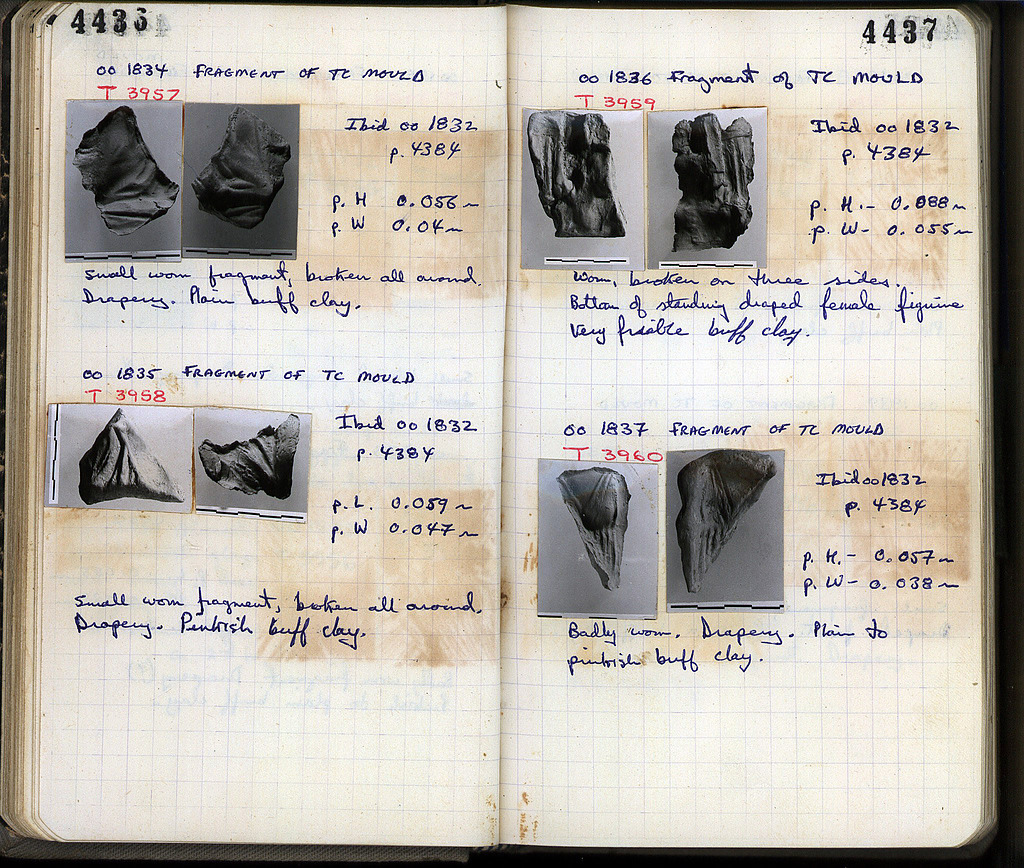 4436
OO 1834 FRAGMENT OF TC MOULD
T 3957
Ibid OO 1832
p. 4384
p. H 0.056 m
p. W 0.04 m
Small worn fragment, broken all around.
Drapery. Plain buff clay.
OO 1835 FRAGMENT OF TC MOULD
T 3958
Ibid OO 1832
p. 4384
p. L. 0.059 m
p. W 0.047 m
Small worn fragment, broken all around.
Drapery. Pinkish buff clay.
4437
OO 1836 Fragment of TC MOULD
T 3959
Ibid OO 1832
p. 4384
p. H.- 0.088 m
p. W- 0.055 m
Worn, broken on three sides.
Bottom of standing draped female figurine
Very friable buff clay.
OO 1837 FRAGMENT OF TC MOULD
T 3960
Ibid OO 1832
p. 4384
p. H.- 0.057 m
p. W- 0.038 m
Badly worn. Drapery. Plain to
pinkish buff clay.